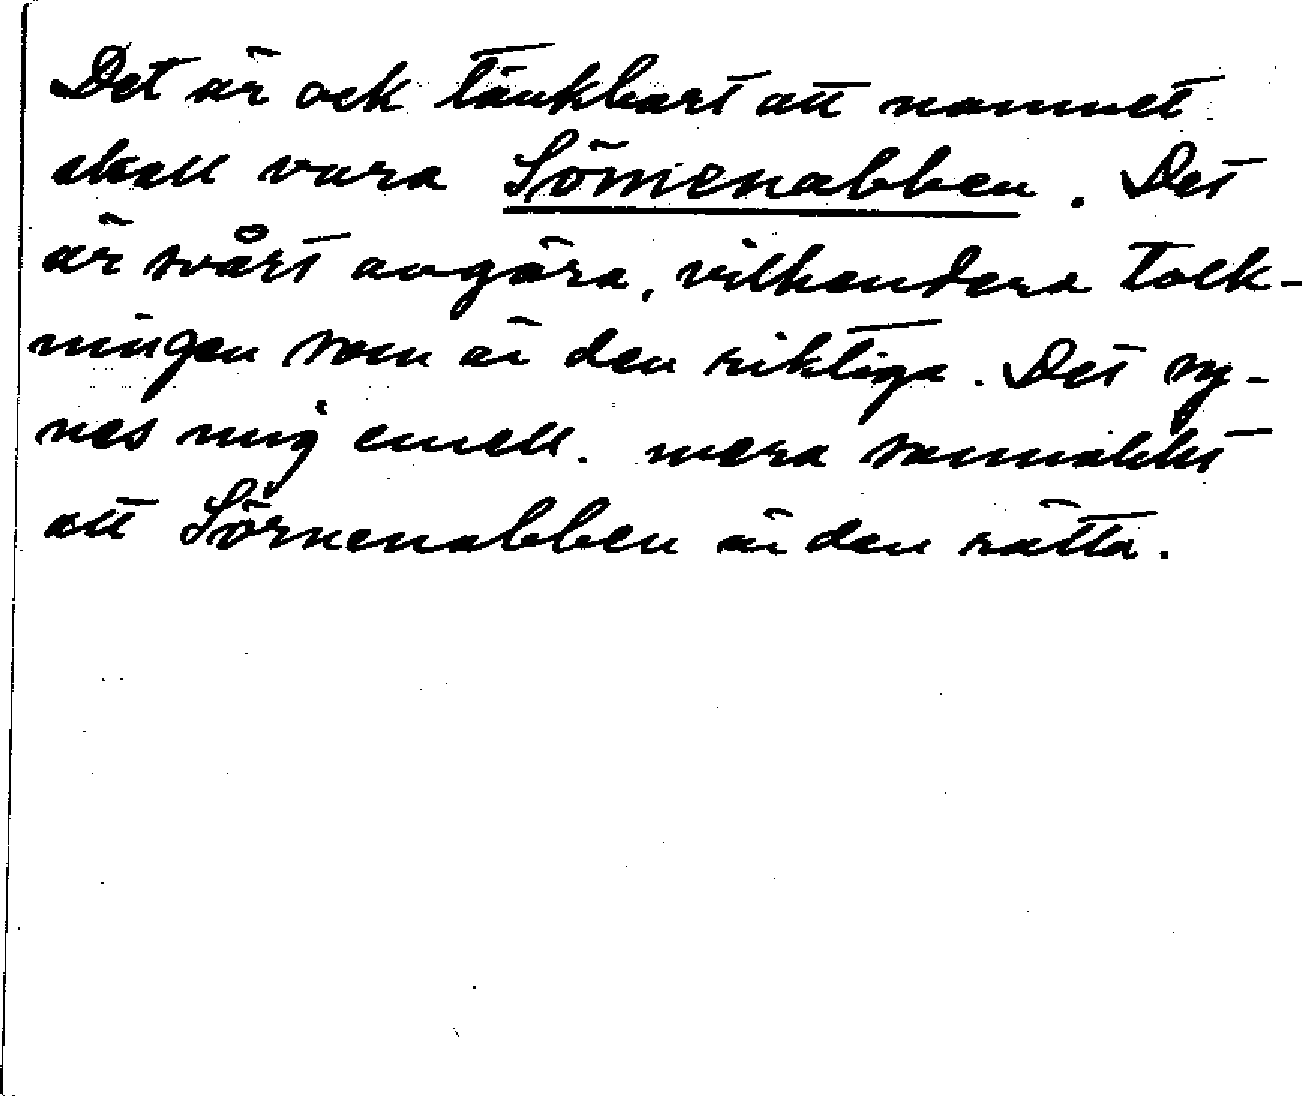 Det är ock tänkbart att namnet
skall vara Sömenabben. Det
är svårt avgöra, vilkendera tolk-
ningen som är den riktiga. Det sy-
nes mig emell. mera sannolikt
att Sörnenabben är den rätta.